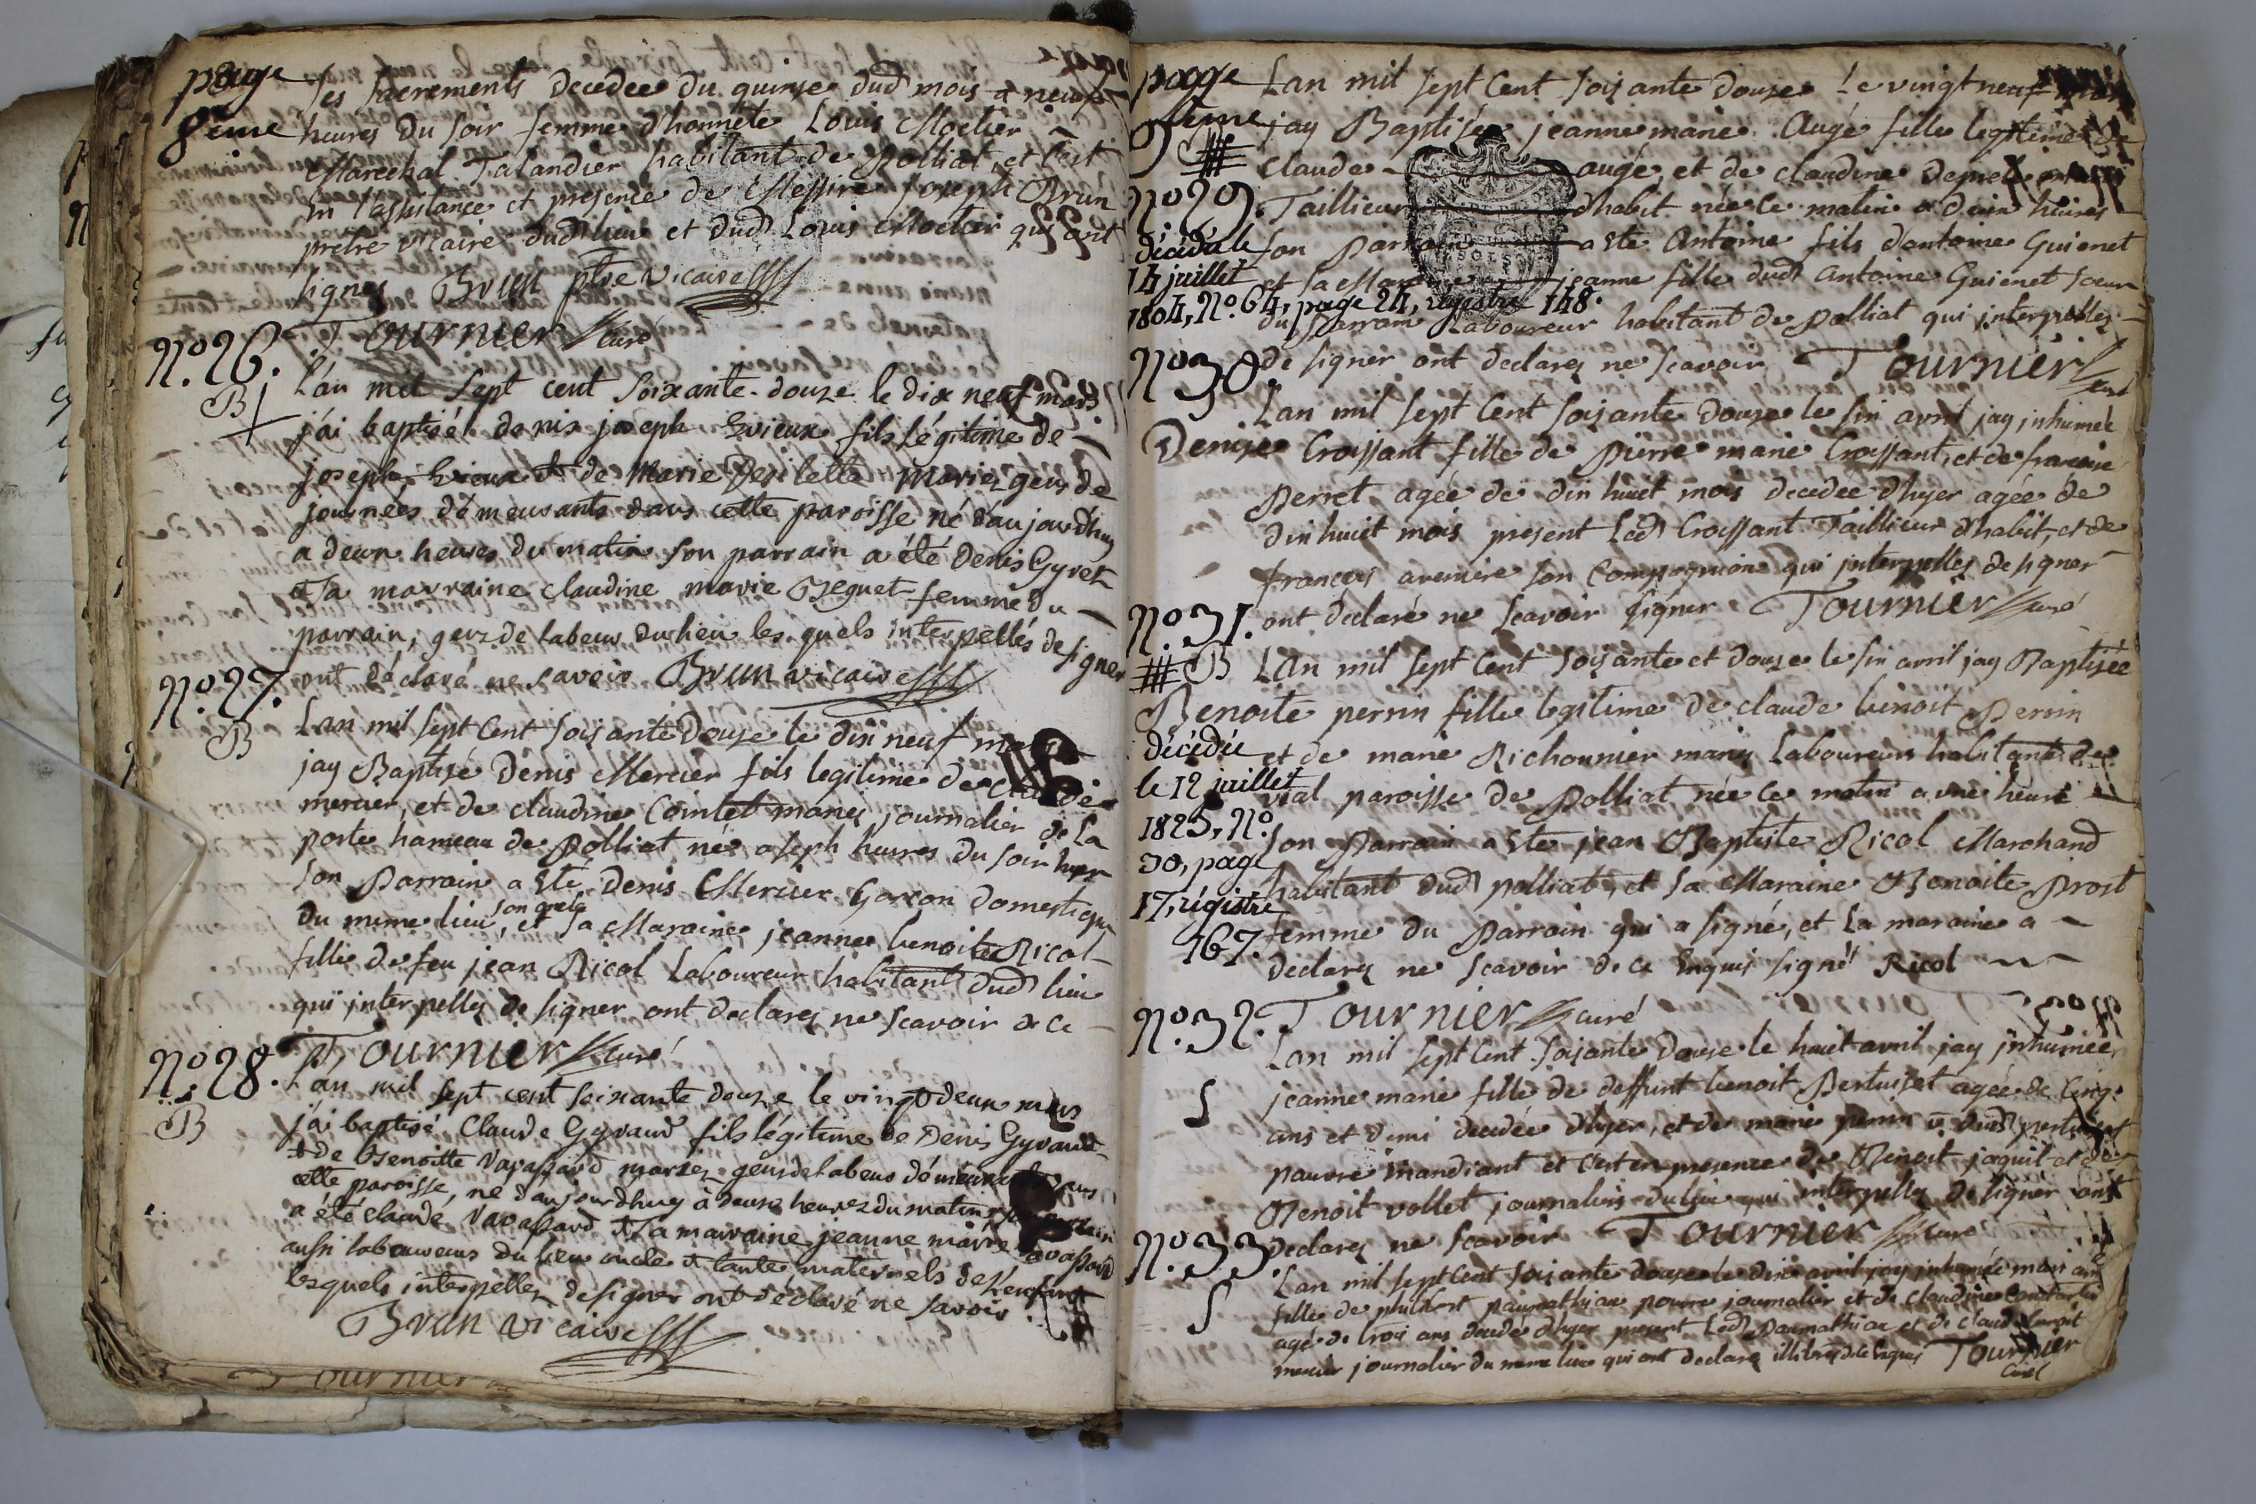 page
8ème
ses sacrements decedee du quinse dud mois a neuf
heures du soir femme d'honnete Louis Moctier
Marechal Talandier habitant de Polliat et c'est
en l'assistance et presence de Messire Joseph Brun
pretre vicaire dud lieu et dud Louis Moctier qui ont
signes Brun ptre vicaire
Tournier curé
N.o 26.
B
L'an mil sept cent soixante-douze le dix neuf mars
j'ai baptisé denis joseph Evieux fils légitime de
joseph Evieux & de Marie Desilette mariez gens de
journées démeurants dans cette paroisse né d'aujourdhuy
a deux heures du matin son parrain a été Denis Gyret
& sa marraine claudine marie Beguet femme du
parrain, gens de labeur du lieu les quels interpellés de signer
ont déclaré ne savoir Brun vicaire
N.o 27.
B
Lan mil sept Cent soisante Douse le dix neuf mars
jay Baptisé Denis Mercier fils legitime de claude
mercier, et de claudine Cointet maries journalier de la
poste hameau de Polliat né a sept heures du soir hyer
son Parrain a Eté Denis Mercier Garcon Domestique
du meme lieu, son oncle et sa Maraine jeanne benoite Ricol
fille de feu jean Ricol Laboureur habitant dud lieu
qui interpelles de signer ont declares ne scavoir de ce
Tournier curé
N.o 28.
B
L'an mil sept cent soixante douze le vingt deux mars
j'ai baptisé Claude Gyraud fils légitime de Denis Gyraud
& de Benoitte Vavassard mariez gens de labeur démeurants dans
cette paroisse, né d'aujourdhuy à deux heures du matin son parrain
a été claude Vavassard & sa marraine jeanne marie Vavassard
aussi laboureurs du lieu oncle & tante maternels de l'enfant
lesquels interpellez de signer ont déclaré ne savoir
Brun vicaire
Tournier
page
9ème
Lan mil sept Cent soisante Douse Le vingt neuf mars
jay Baptisée jeanne marie Augé fille legitime de
claude augé et de claudine
N.o 29.
Taillieur d'habit née ce matin a deux heures
son Parrain a Ete Antoine fils d'antoine Guienet
et sa Maraine jeanne fille dud Antoine Guienet soeur
du Parrain Laboureur habitant de Polliat qui interpelles
décédée le
14 juillet
1804, N.o 64, page 24, régistre 148.
de signer ont declares ne scavoir Tournier curé
N.o 30
Lan mil sept Cent soisante Douse le six avril jay inhumée
Denise Croissant fille de Pierre marie Croissant, et de francoise
Perret agée de dix huict mois decedée d'hyer agée de
dix huict mois present Led Croissant Taillieur d'habit, et de
francois son Compagnion qui interpelles de signer
ont declaré ne scavoir signer Tournier curé
N.o 31.
B
LAn mil sept Cent soisante et douse le six avril jay Baptisée
Benoite perrin fille legitime de claude benoit Perrin
et de marie Richonnier maries Laboureurs habitant de
vial paroisse de Polliat née ce matin a une heure
son Parrain a Ete jean Baptiste Ricol Marchand
habitant dud polliat, et sa Maraine Benoite Prost
femme du Parrain qui a signé, et La maraine a
declares ne scavoir de ce Enquis signé Ricol
décédée
le 12 juillet
1825, N.o
30, page
17, régistre
167.
Tournier curé
N.o 32.
S
Lan mil sept Cent soisante douse le huit avril jay inhumée
jeanne marie fille de deffunt benoit Pertuiset agée de Cinq
ans et demi decedée d'hyer, et de marie perrin
pauvre mandiant et c'est en presence de Benoit jaquit et de
Benoit vollet journaliers du lieu qui interpelles de signer ont
declares ne scavoir Tournier curé
N.o 33.
S
Lan mil sept Cent soisante douse le dix avril jay inhumée mari ane
fille de philibert paumathiau pauvre journalier et de claudine
agé de trois ans decedée d'hyer present Led Paumathiau et de claude benoit
mercier journalier du meme lieu qui ont declares illitérés de ce Enquis Tournier
Curé